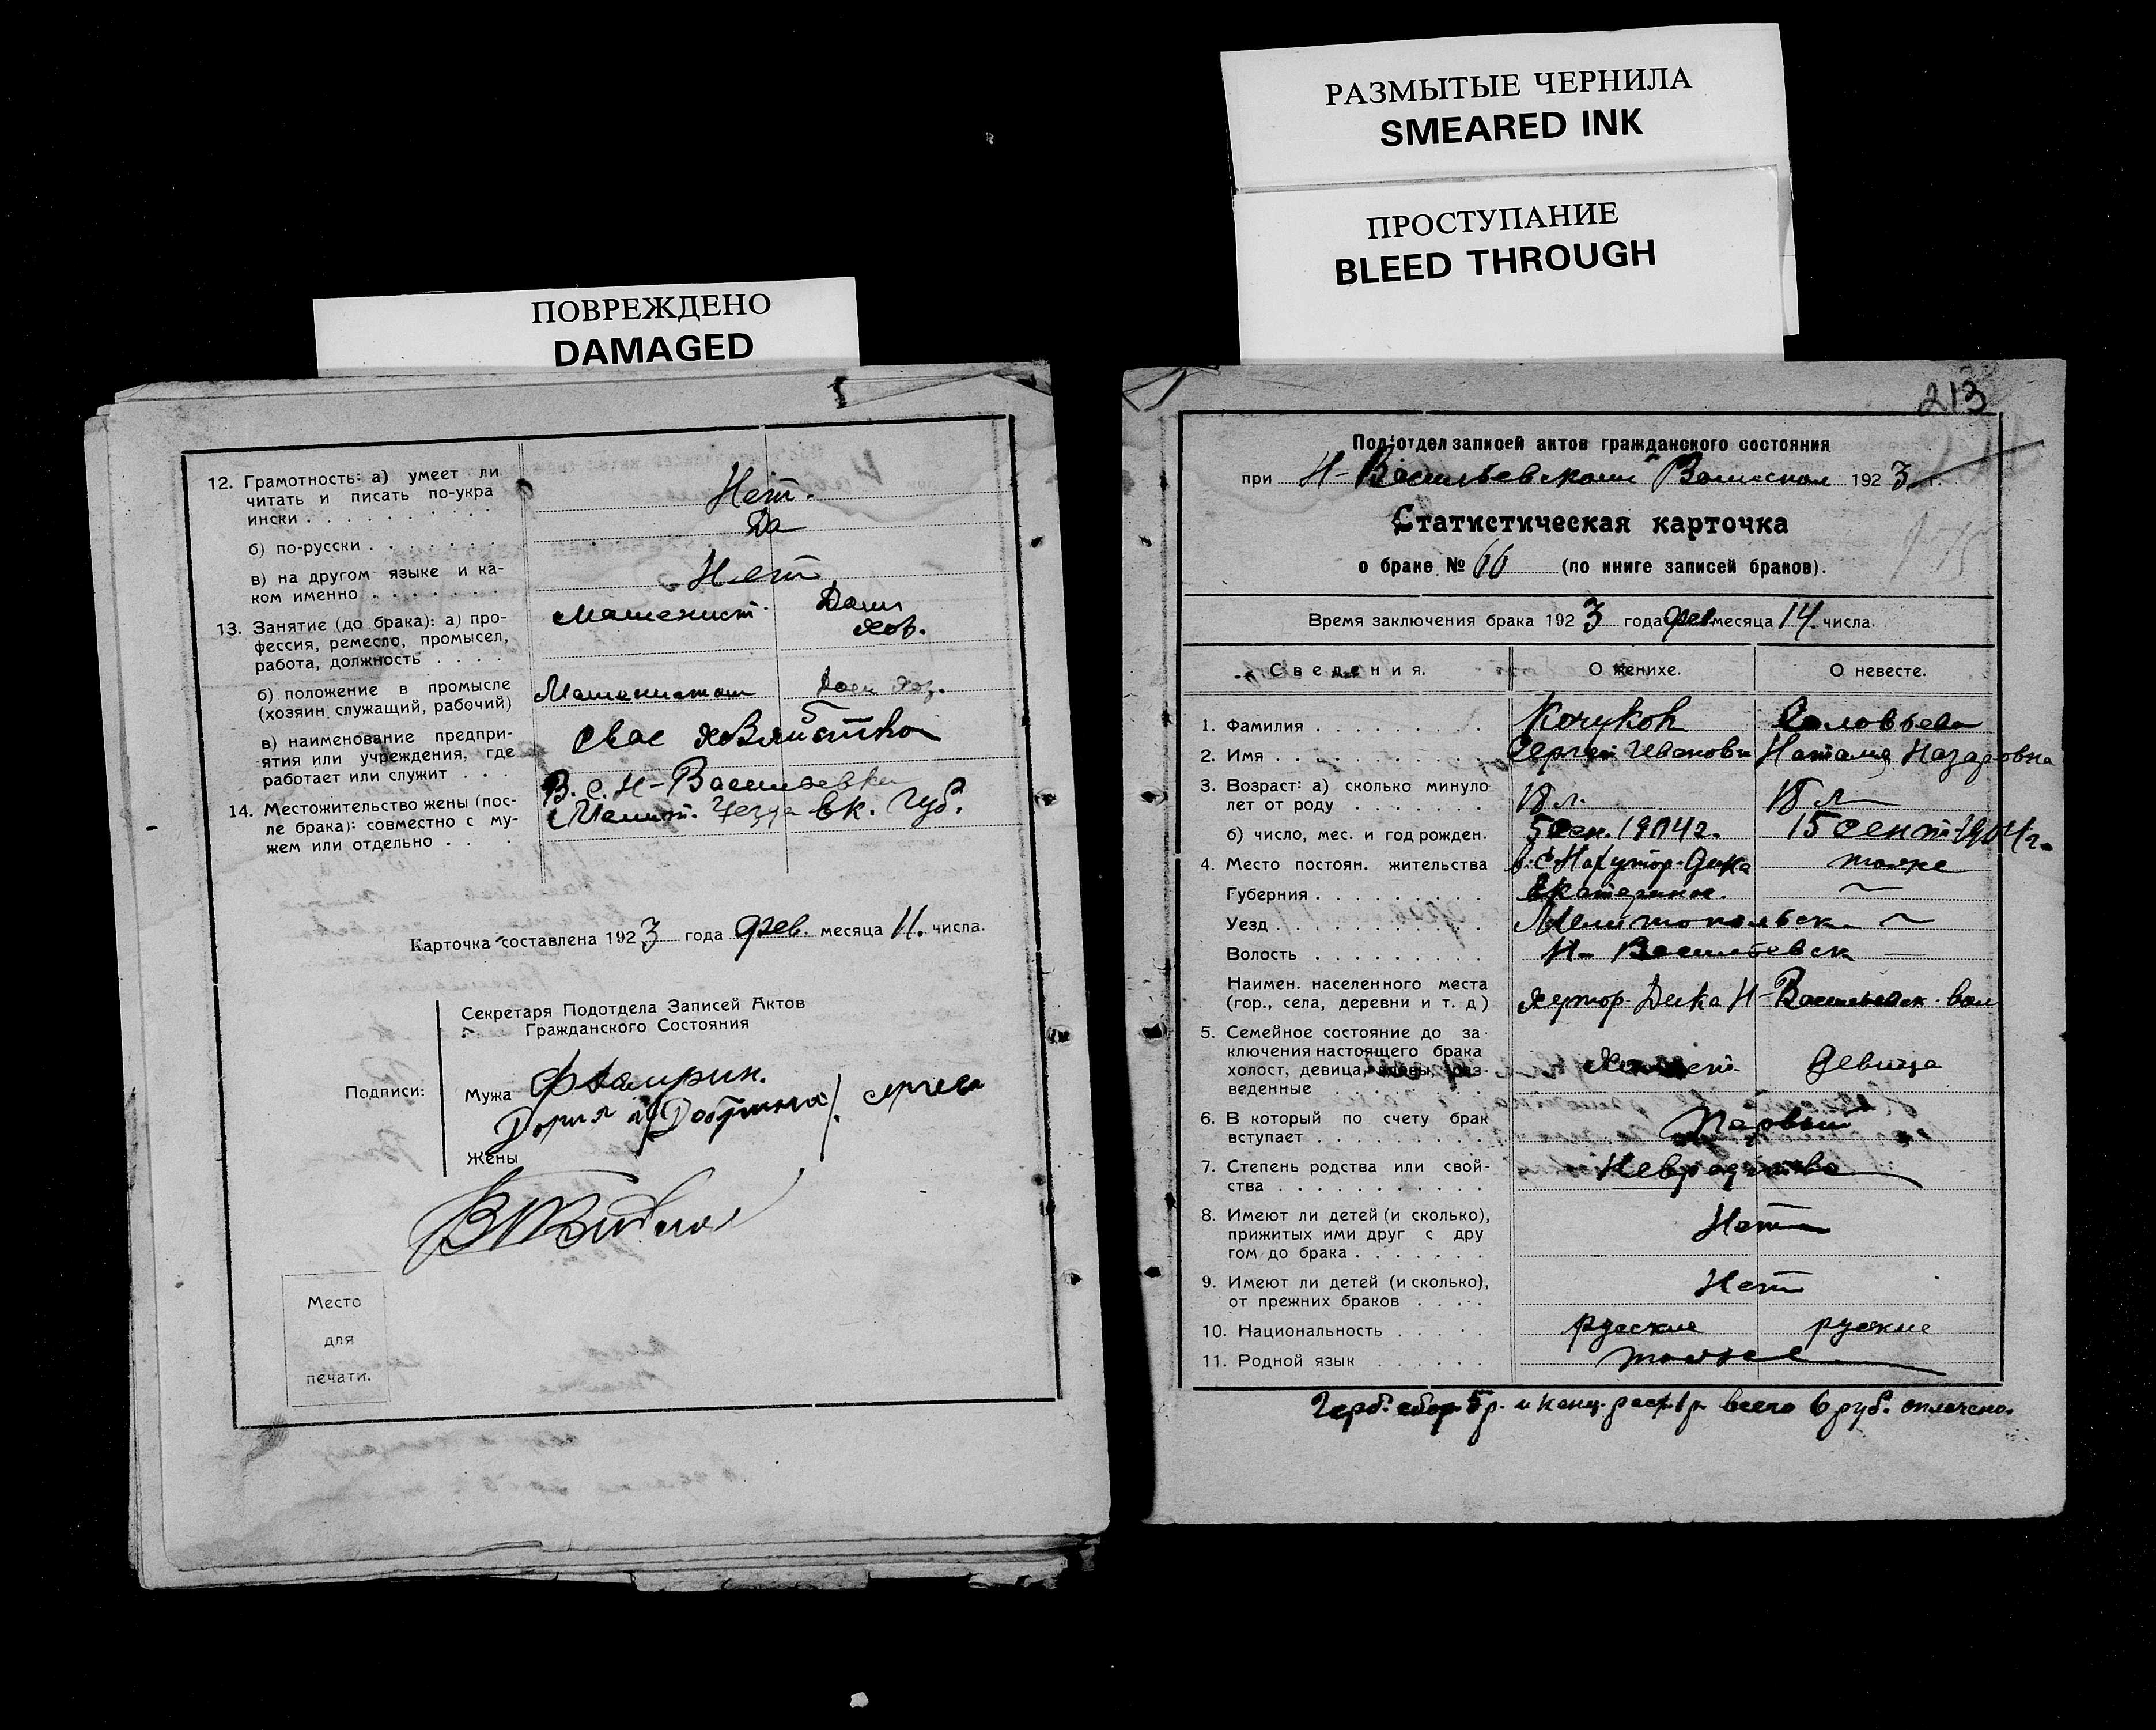 РАЗМЫТЫЕ ЧЕРНИЛА
SMEARED INK
ПРОСТУПАНИЕ
BLEED THROUGH
ПОВРЕЖДЕНО
DAMAGED
12. Грамотность: а) умеет ли
читать и писать по-укра
ински . . . . . . . . . . Нет.
б) по-русски . . . . . . . Да
в) на другом языке и ка-
ком именно . . . . . . . Нет
13. Занятие (до брака): а) про-
фессия, ремесло, промысел,
работа, должность . . . . Машенист. Дом хоз.
б) положение в промысле
(хозяин служащий, рабочий) Дом хоз.
в) наименование предпри-
ятия или учреждения, где
работает или служит . . . Свое
14. Местожительство жены (пос-
ле брака): совместно с му-
жем или отдельно . . . . В. С. Н-Васильевка
Мелит. Уезда Ек. Губ.
Карточка составлена 1923 года фев. месяца 11. числа.
Секретаря Подотдела Записей Актов
Гражданского Состояния
Подписи:
Мужа
Жены
Место
для
печати.
213
Под'отдел записей актов гражданского состояния
при Н-Васильевском 1923 г.
Статистическая карточка
о браке № 66 (по книге записей браков).
Время заключения брака 1923 года фев. месяца 14 числа.
Сведения. О женихе. О невесте.
1. Фамилия . . . . . . . . . Кочуков Соловьева
2. Имя . . . . . . . . . . . Сергей Иванови Наталия Назаровна
3. Возраст: а) сколько минуло
лет от роду . . . . . . . 18 л. 18 л
б) число, мес. и год рожден. 5 Сен. 1904 г. 15 сент 1904 г.
4. Место постоян. жительства тоже
Губерния . . . . . . . . . Екатеринос.
Уезд . . . . . . . . . . . Мелитопольск
Волость . . . . . . . . . Н-Васильевск
Наимен. населенного места
(гор., села, деревни и т. д) хутор. Дика Н-Васильевск. вол
5. Семейное состояние до за-
ключения настоящего брака
холост, девица, вдовы, раз-
веденные . . . . . . . . . девица
6. В который по счету брак
вступает . . . . . . . . . Первый
7. Степень родства или свой-
ства . . . . . . . . . . . Невродстве
8. Имеют ли детей (и сколько),
прижитых ими друг с дру
гом до брака . . . . . . . Нет
9. Имеют ли детей (и сколько),
от прежних браков . . . . Нет
10. Национальность . . . . . руские руские
11. Родной язык . . . . . . тоже
Герб. сбор 5 р. и канц. расх 1 р. всего 6 руб. оплачено.